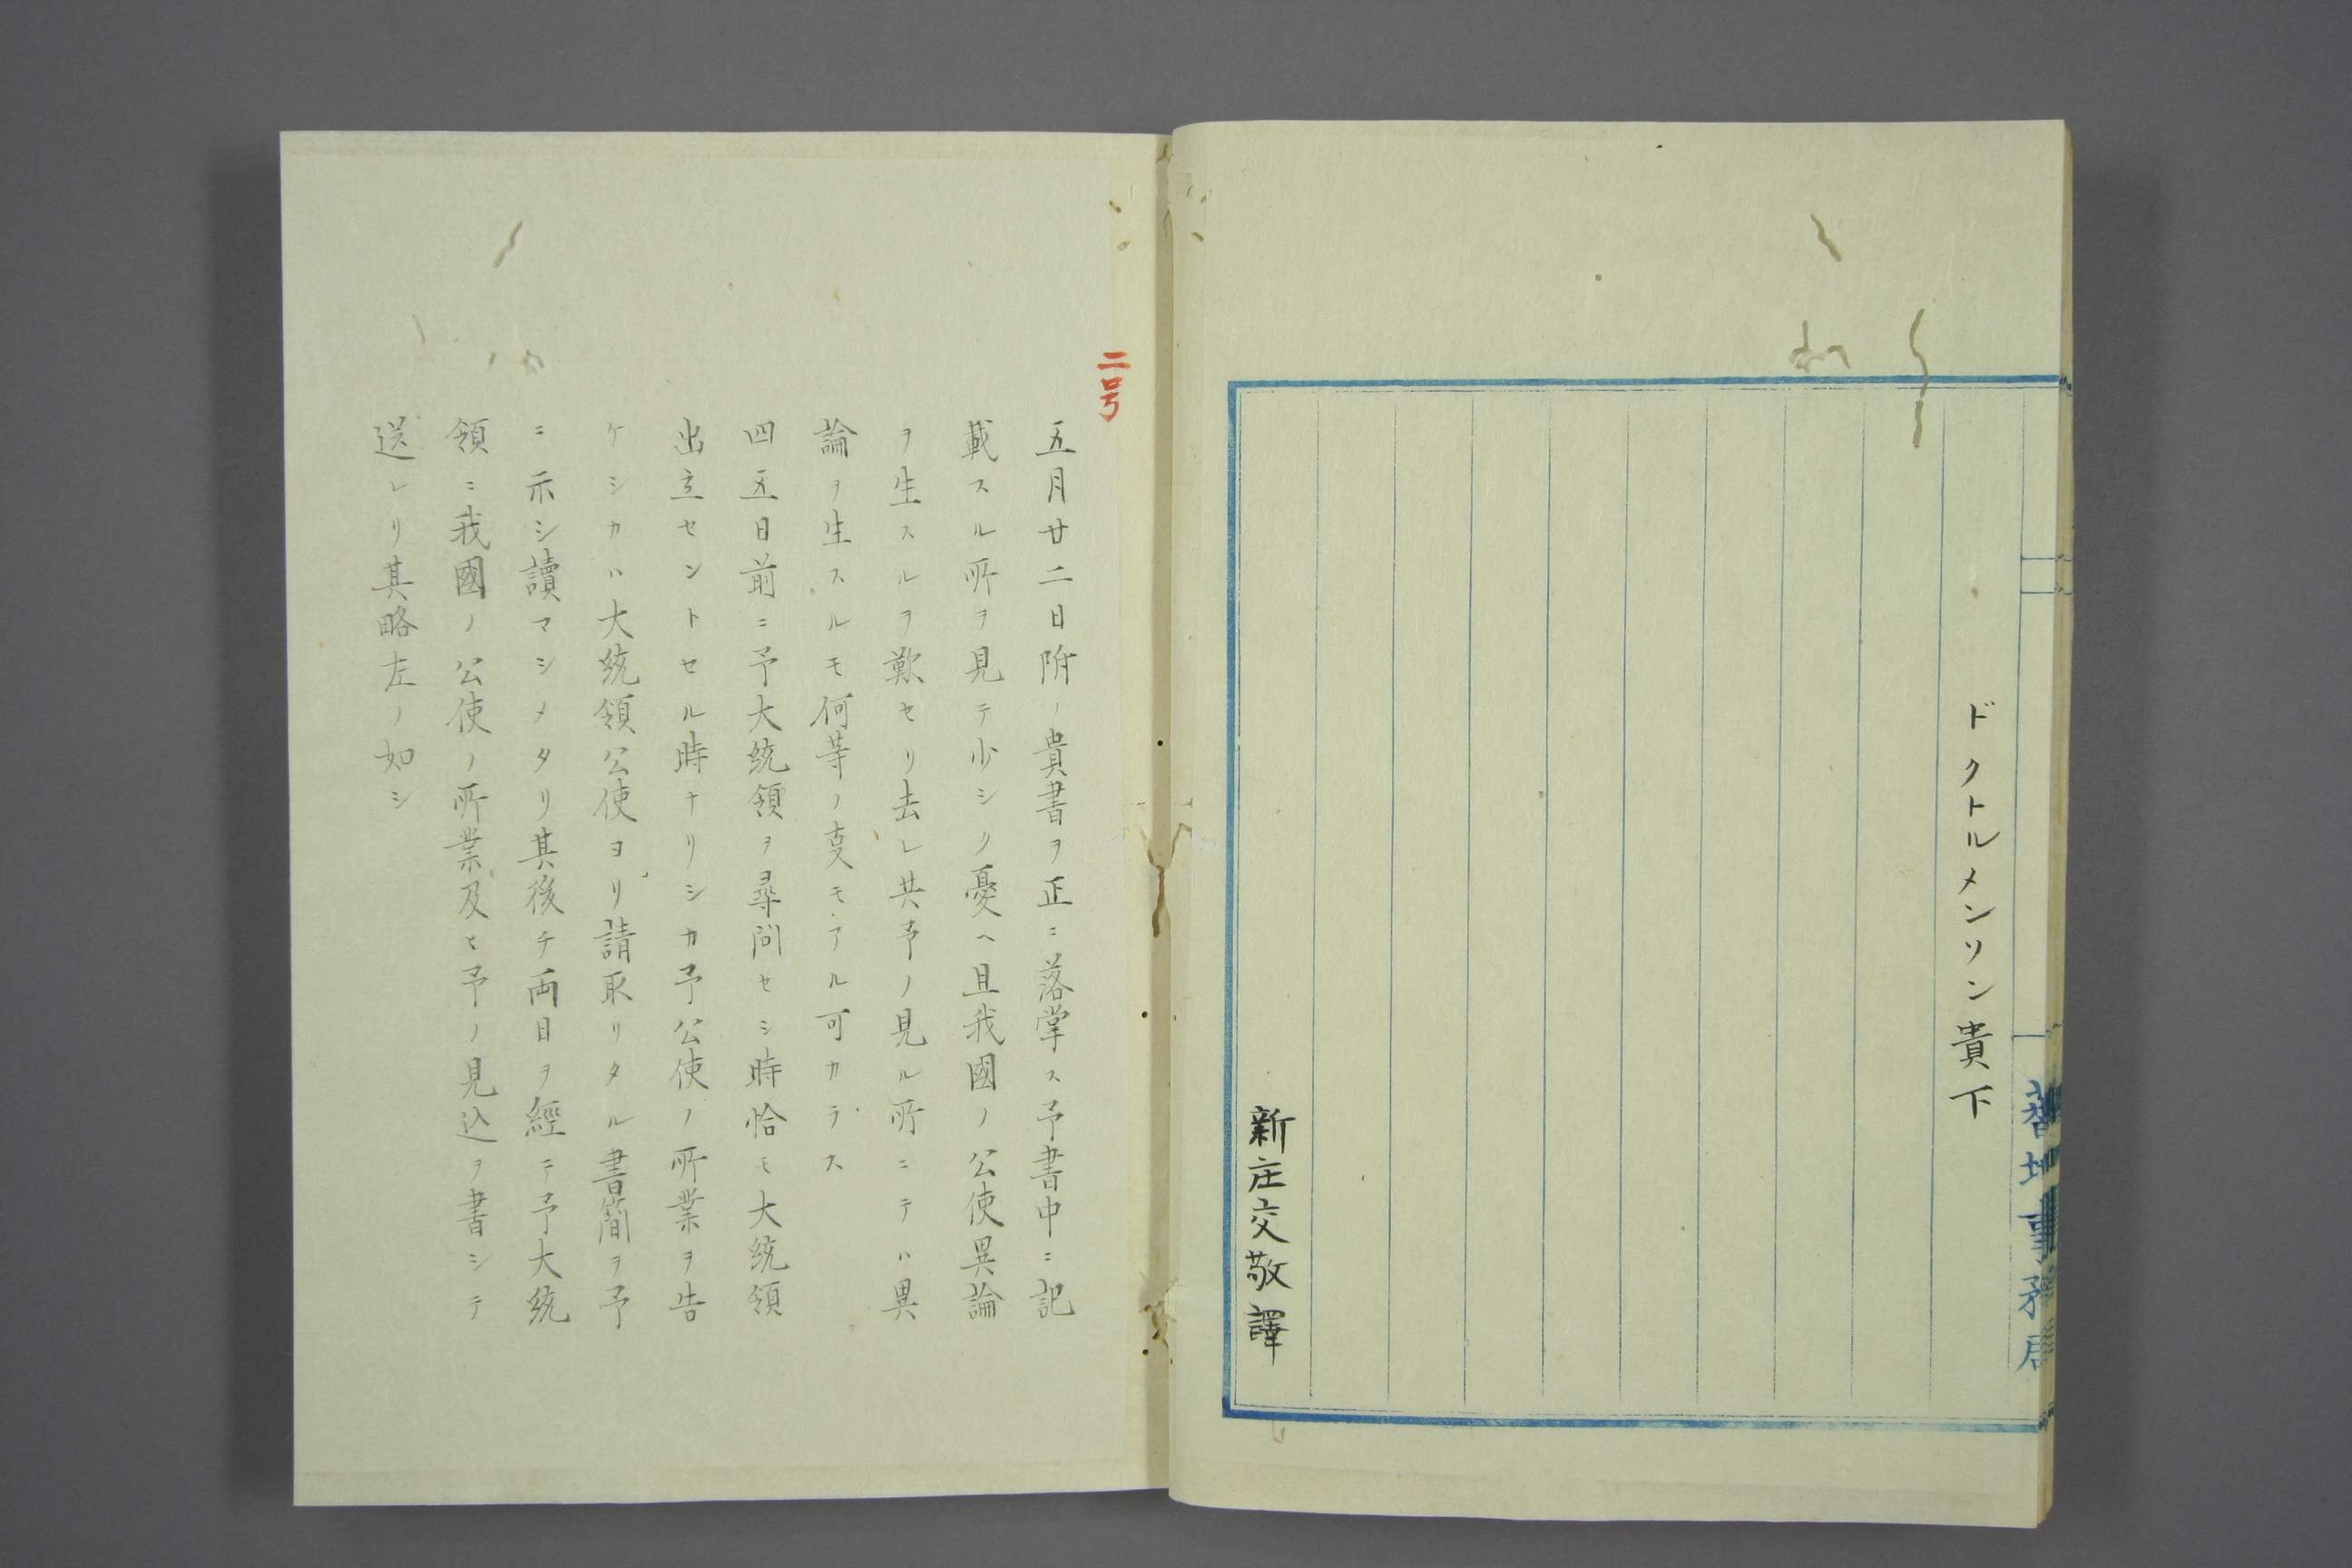 ドクトルメンソン貴下
新庄交敬譯
蕃地事務局
二号
五月廿二日附ノ貴書ヲ正ニ落掌ス予書中ニ記
載スル所ヲ見テ少シク憂ヘ且我國ノ公使異論
ヲ生スルヲ歎セリ去レ共予ノ見ル所ニテハ異
論ヲ生スルモ何等ノ叓モアル可カラス
四五日前ニ予大統領ヲ尋問セシ時恰モ大統領
出立セントセル時ナリシカ予公使ノ所業ヲ告
ケシカハ大統領公使ヨリ請取リタル書簡ヲ予
ニ示シ讀マシメタリ其後チ両日ヲ經テ予大統
領ニ我國ノ公使ノ所業及ヒ予ノ見込ヲ書シテ
送レリ其略左ノ如シ